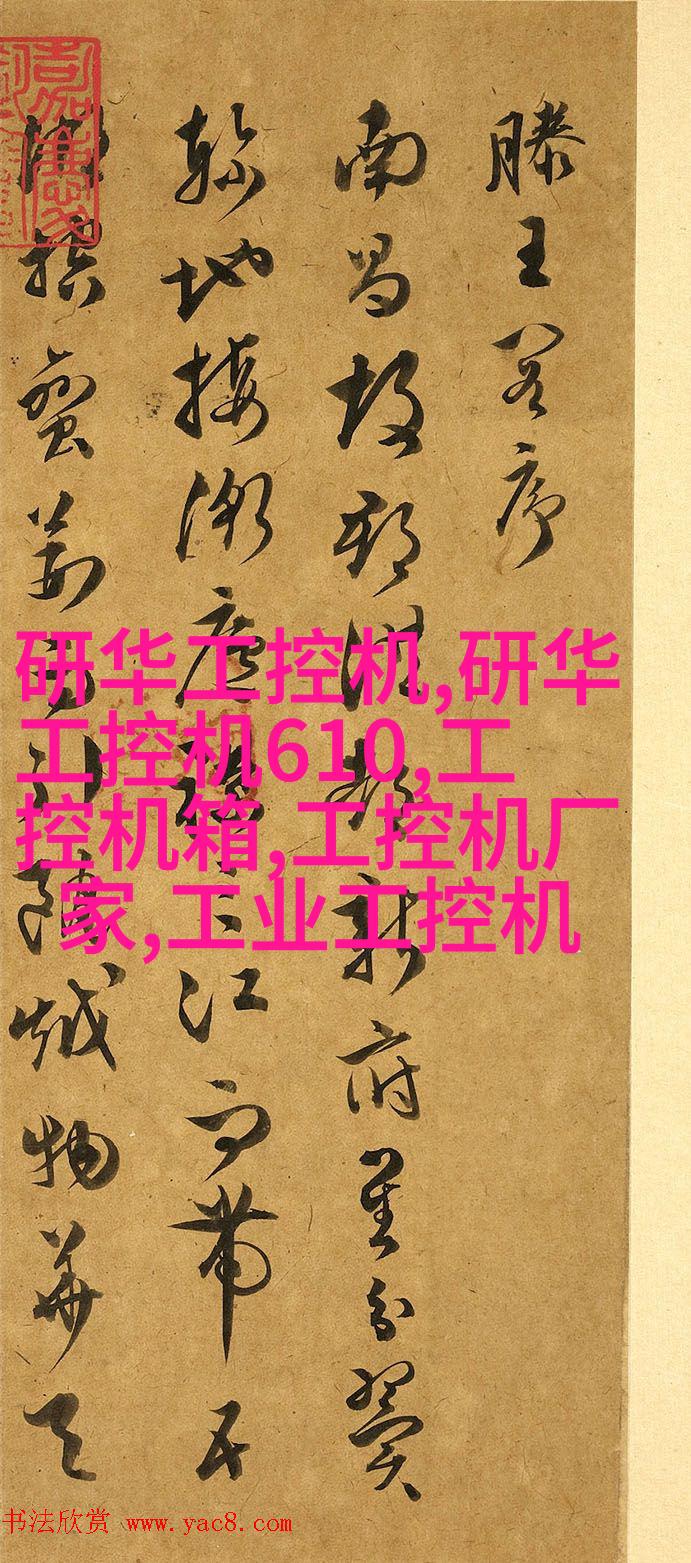 滕王閣序
南昌故郡洪都新府星分翼
軫地接衡廬襟三江而帶五
湖控蠻荊而引甌越物華天
研华工控机,研华
工控机610,工
控机箱,工控机厂
家,工业工控机
书法欣赏 www.yac8.com